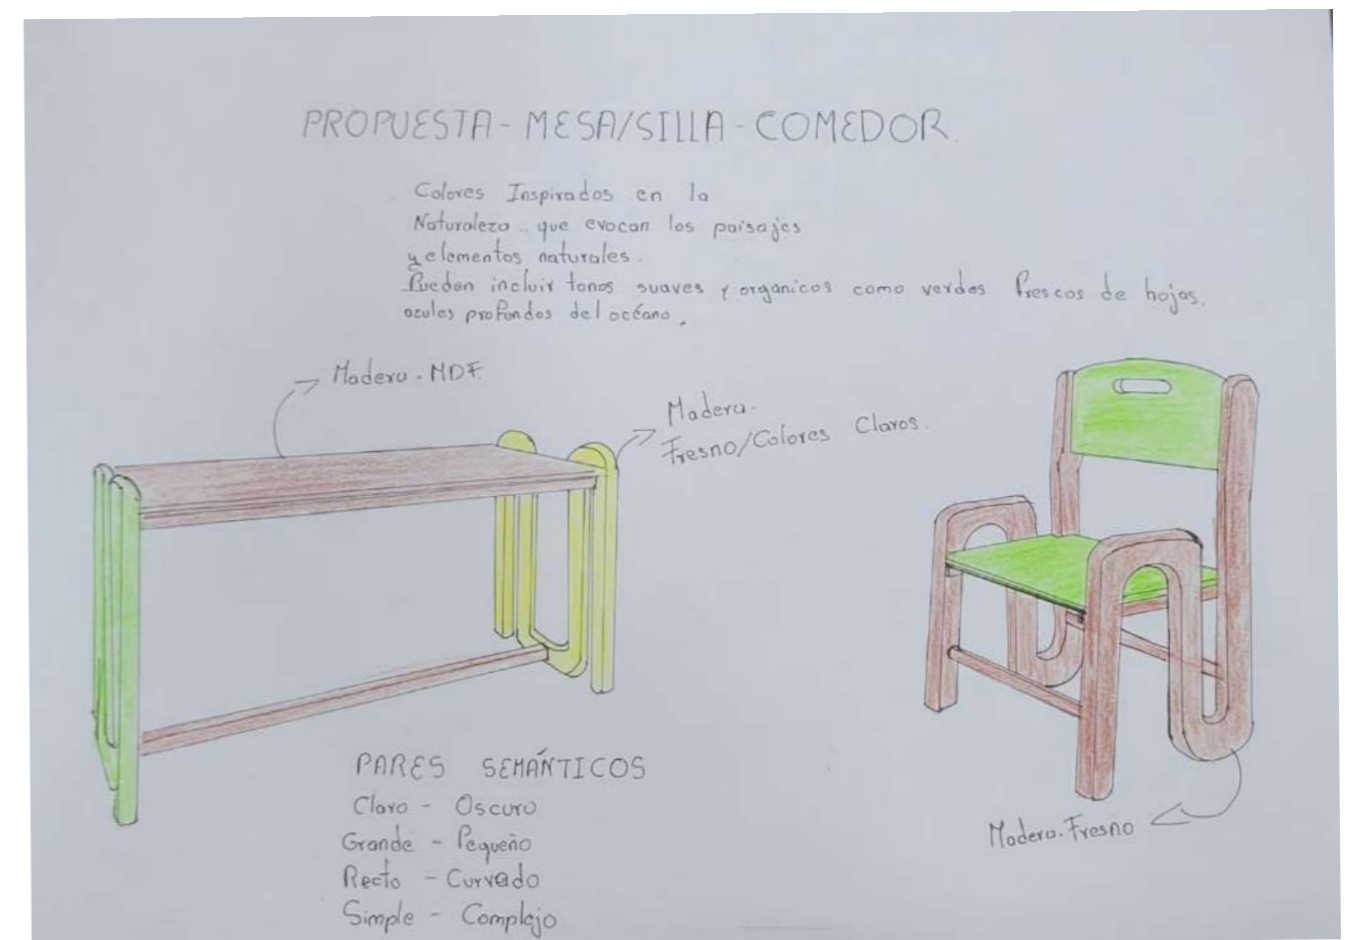 PROPUESTA - MESA/SILLA - COMEDOR.
Colores Inspirados en la
Naturaleza.. que evocan los paisajes
y elementos naturales.
Pueden incluir tonos suaves y organicos como verdes frescos de hojas.
azules profundos del océano.
Madera - MDF.
Madera.
Fresno/Colores Claros.
PARES SEMÁNTICOS
Claro - Oscuro
Grande - Pequeño
Recto - Curvado
Simple - Complejo
Madera. Fresno